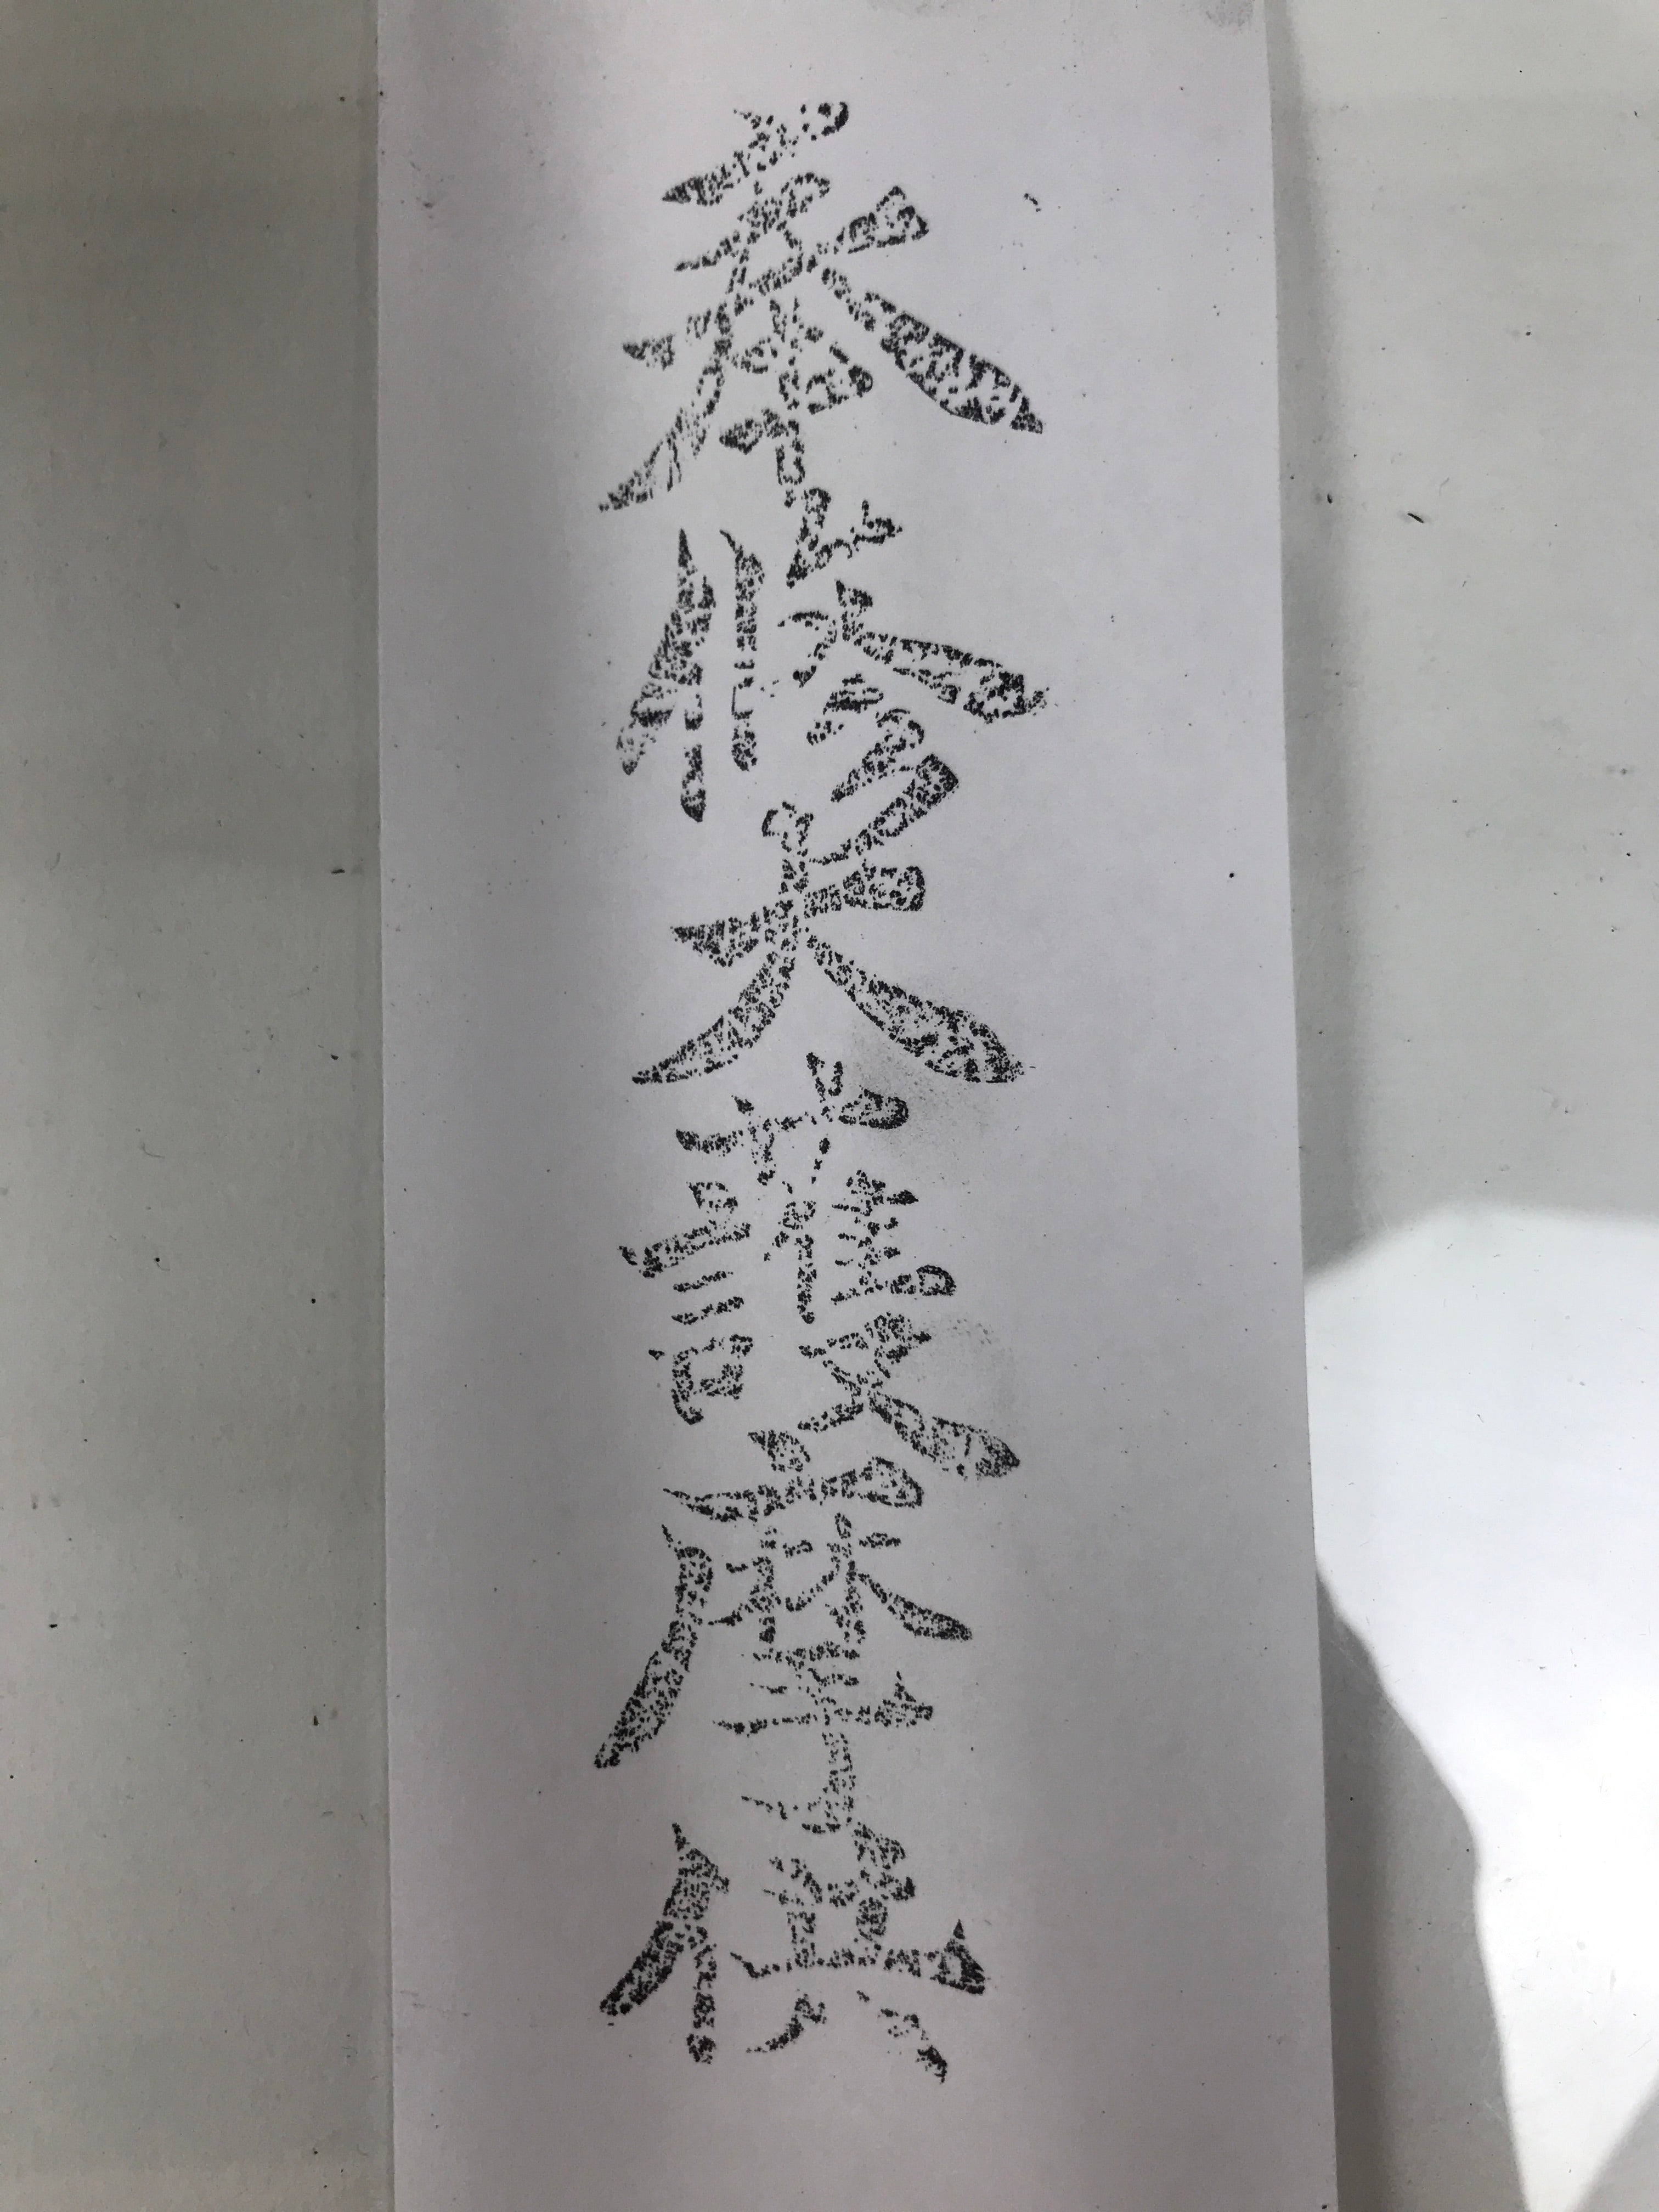 奉修大護摩供